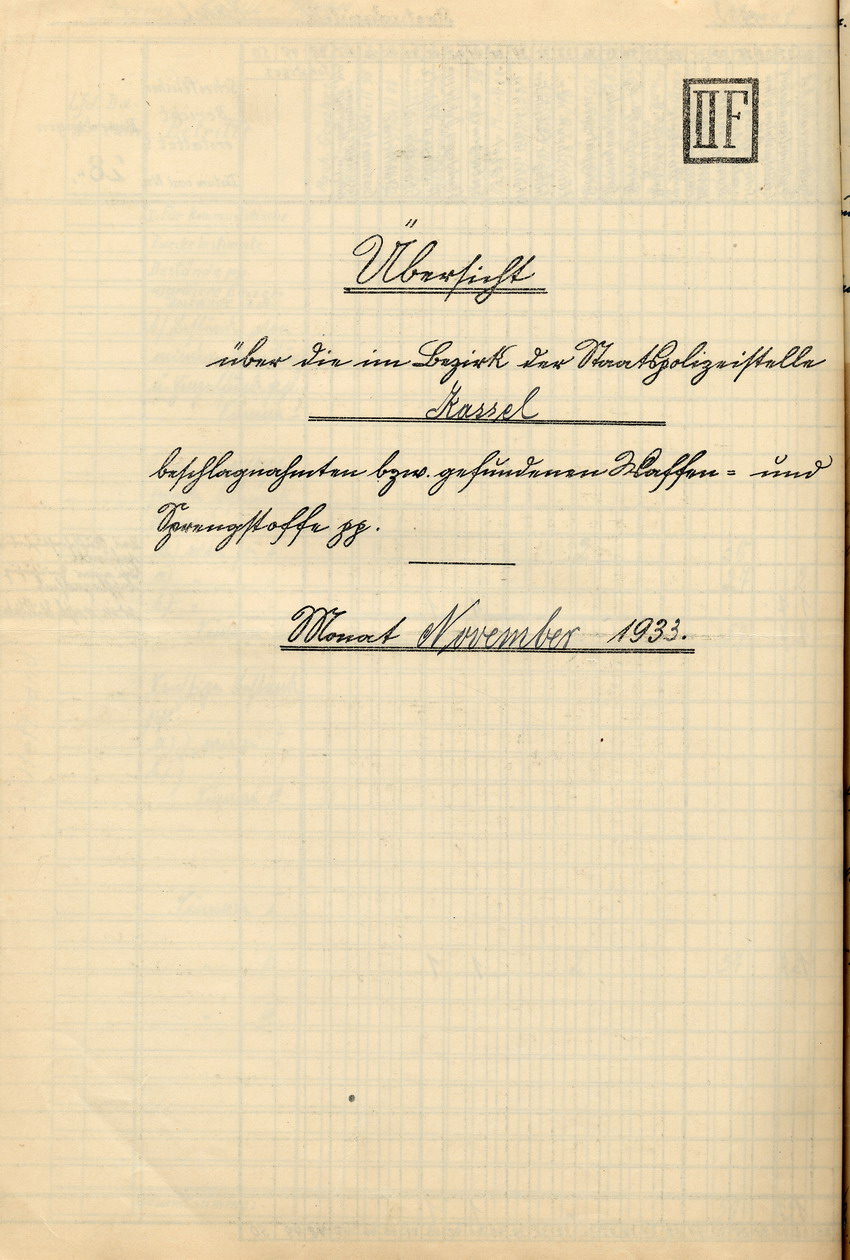 II F
Übersicht
über die im Bezirk der Staatspolizeistelle
Kassel
beschlagnahmten bzw. gefundenen Waffen= und
Sprengstoffe pp.
Monat November 1933.